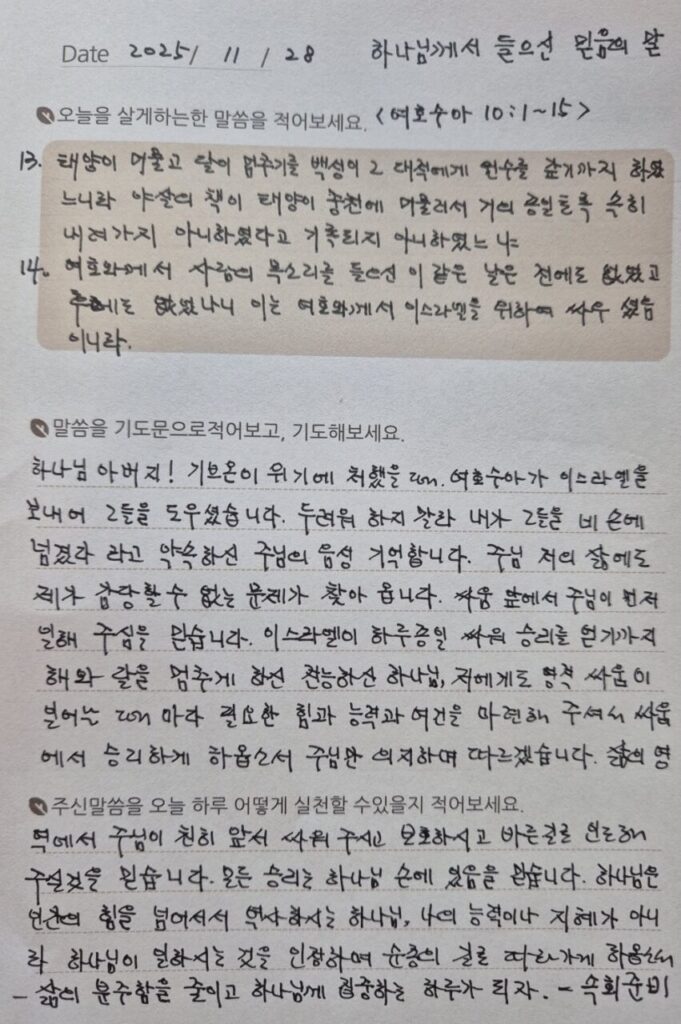 Date 2025/ 11 / 28 하나님께서 들으신 믿음의 말
오늘을 살게하는한 말씀을 적어보세요. <여호수아 10:1~15>
13. 태양이 머물고 달이 멈추기를 백성이 그 대적에게 원수를 갚기까지 하였
느니라 야살의 책이 태양이 중천에 머물러서 거의 종일토록 속히
내려가지 아니하였다고 기록되지 아니하였느냐
14. 여호와께서 사람의 목소리를 들으신 이 같은 날은 전에도 없었고
후에도 없었나니 이는 여호와께서 이스라엘을 위하여 싸우셨음
이니라.
말씀을 기도문으로적어보고, 기도해보세요.
하나님 아버지! 기브온이 위기에 처했을 때. 여호수아가 이스라엘을
보내어 그들을 도우셨습니다. 두려워 하지 말라 내가 그들을 네 손에
넘겼다 라고 약속하신 주님의 음성 기억합니다. 주님 저의 삶에도
제가 감당할수 없는 문제가 찾아 옵니다. 싸움 앞에서 주님이 먼저
일해 주심을 믿습니다. 이스라엘이 하루종일 싸워 승리를 얻기까지
해와 달을 멈추게 하신 전능하신 하나님, 저에게도 영적 싸움이
일어나는 때 마다 필요한 힘과 능력과 여건을 마련해 주셔서 싸움
에서 승리하게 하옵소서 주님만 의지하며 따르겠습니다. 삶의 영
주신말씀을 오늘 하루 어떻게 실천할 수있을지 적어보세요.
역에서 주님이 친히 앞서 싸워 주시고 보호하시고 바른길로 인도해
주실것을 믿습니다. 모든 승리는 하나님 손에 있음을 믿습니다. 하나님은
인간의 힘을 넘어서서 역사하시는 하나님, 나의 능력이나 지혜가 아니
라 하나님이 일하시는 것을 인정하며 순종의 길로 따라가게 하옵소서
- 삶의 분주함을 줄이고 하나님께 집중하는 하루가 되자. - 속회준비